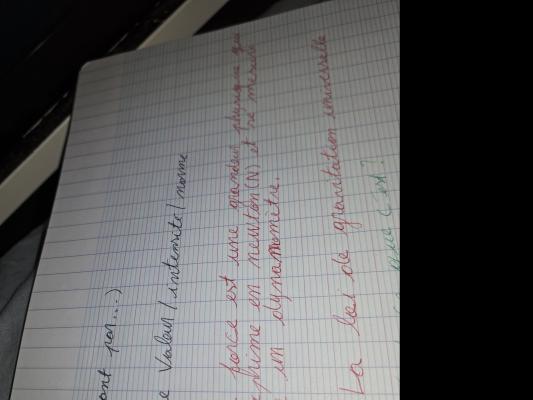 ant par...)
e Valeur / intensité / norme
force est une grandeur physique qui
prime en newton (N) et se mesure
un dynamomètre.
La loi de gravitation universelle
que c'est ?